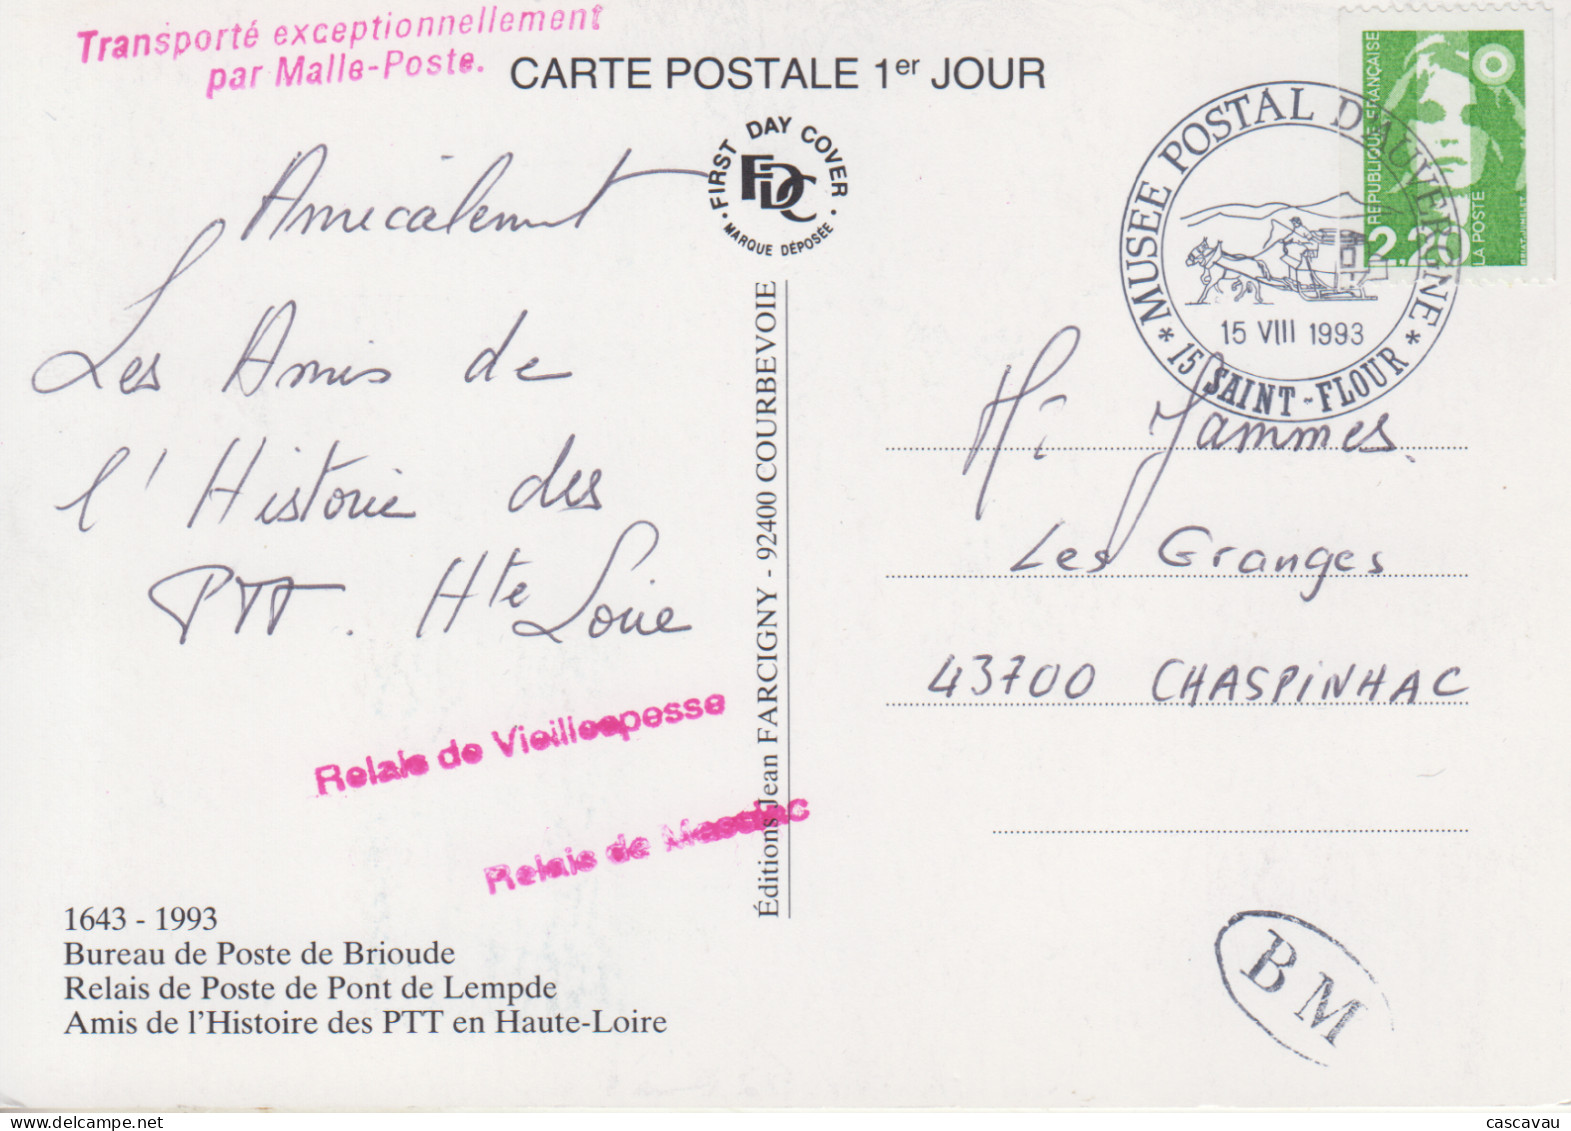 Transporté exceptionnellement
par Malle-Poste.
CARTE POSTALE 1er JOUR
FIRST DAY COVER
FDC
MARQUE DÉPOSÉE
Amicalement
Les Amis de
l'Histoire des
PTT. Hte Loire
Relais de Vieillespesse
Relais de Massiac
1643 - 1993
Bureau de Poste de Brioude
Relais de Poste de Pont de Lempde
Amis de l'Histoire des PTT en Haute-Loire
Éditions Jean FARCIGNY - 92400 COURBEVOIE
MUSEE POSTAL D'AUVERGNE
15 VIII 1993
* 15 SAINT-FLOUR *
REPUBLIQUE FRANÇAISE
2.20
LA POSTE
M. Jammes
Les Granges
43700 CHASPINHAC
BM
cascavau